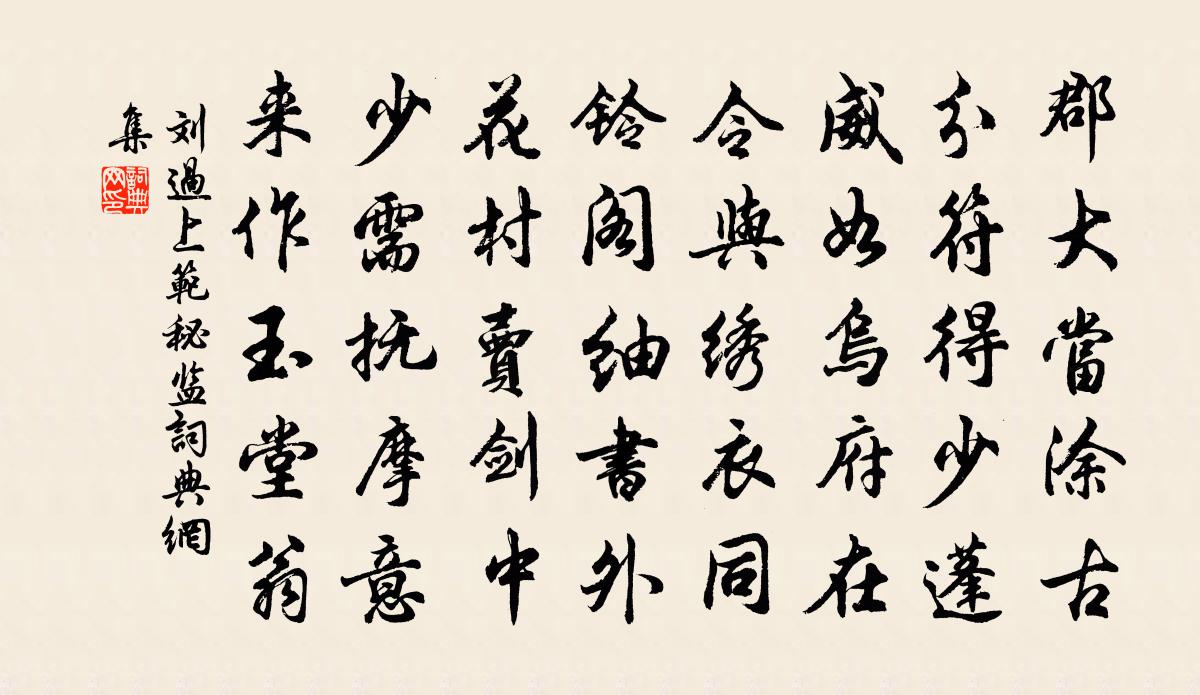 郡大當涂古
分符得少蓬
威如烏府在
令與绣衣同
鈴阁紬書外
花村賣剑中
少需抚摩意
来作玉堂翁
刘過上範秘监詞典網
集
詞典
网印